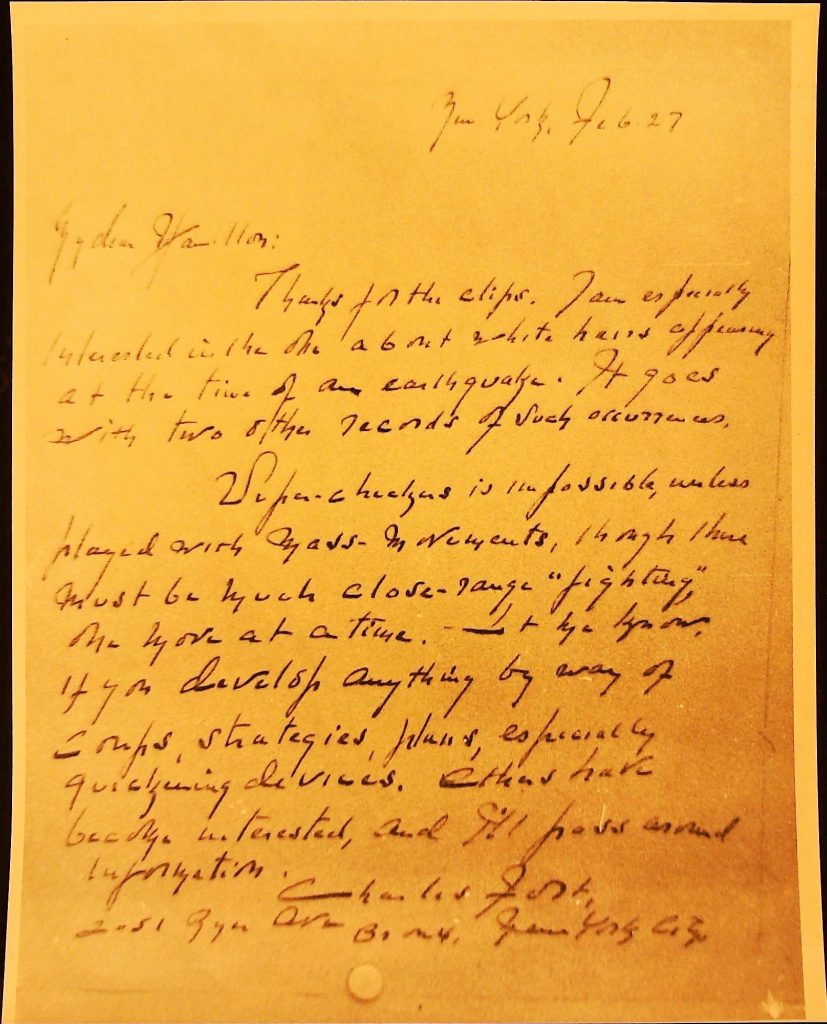 New York, Feb. 27
My dear Hamilton:
Thanks for the clips. I am especially
interested in the one about white hairs appearing
at the time of an earthquake. It goes
with two other records of such occurrences.
Super-checkers is impossible, unless
played with mass-movements, though there
must be much close-range "fighting",
one move at a time. — Let me know,
if you develop anything by way of
coups, strategies, plans, especially
quickening devices. Others have
become interested, and I'll pass around
information.
Charles Fort,
2051 Ryer Ave Bronx, New York City